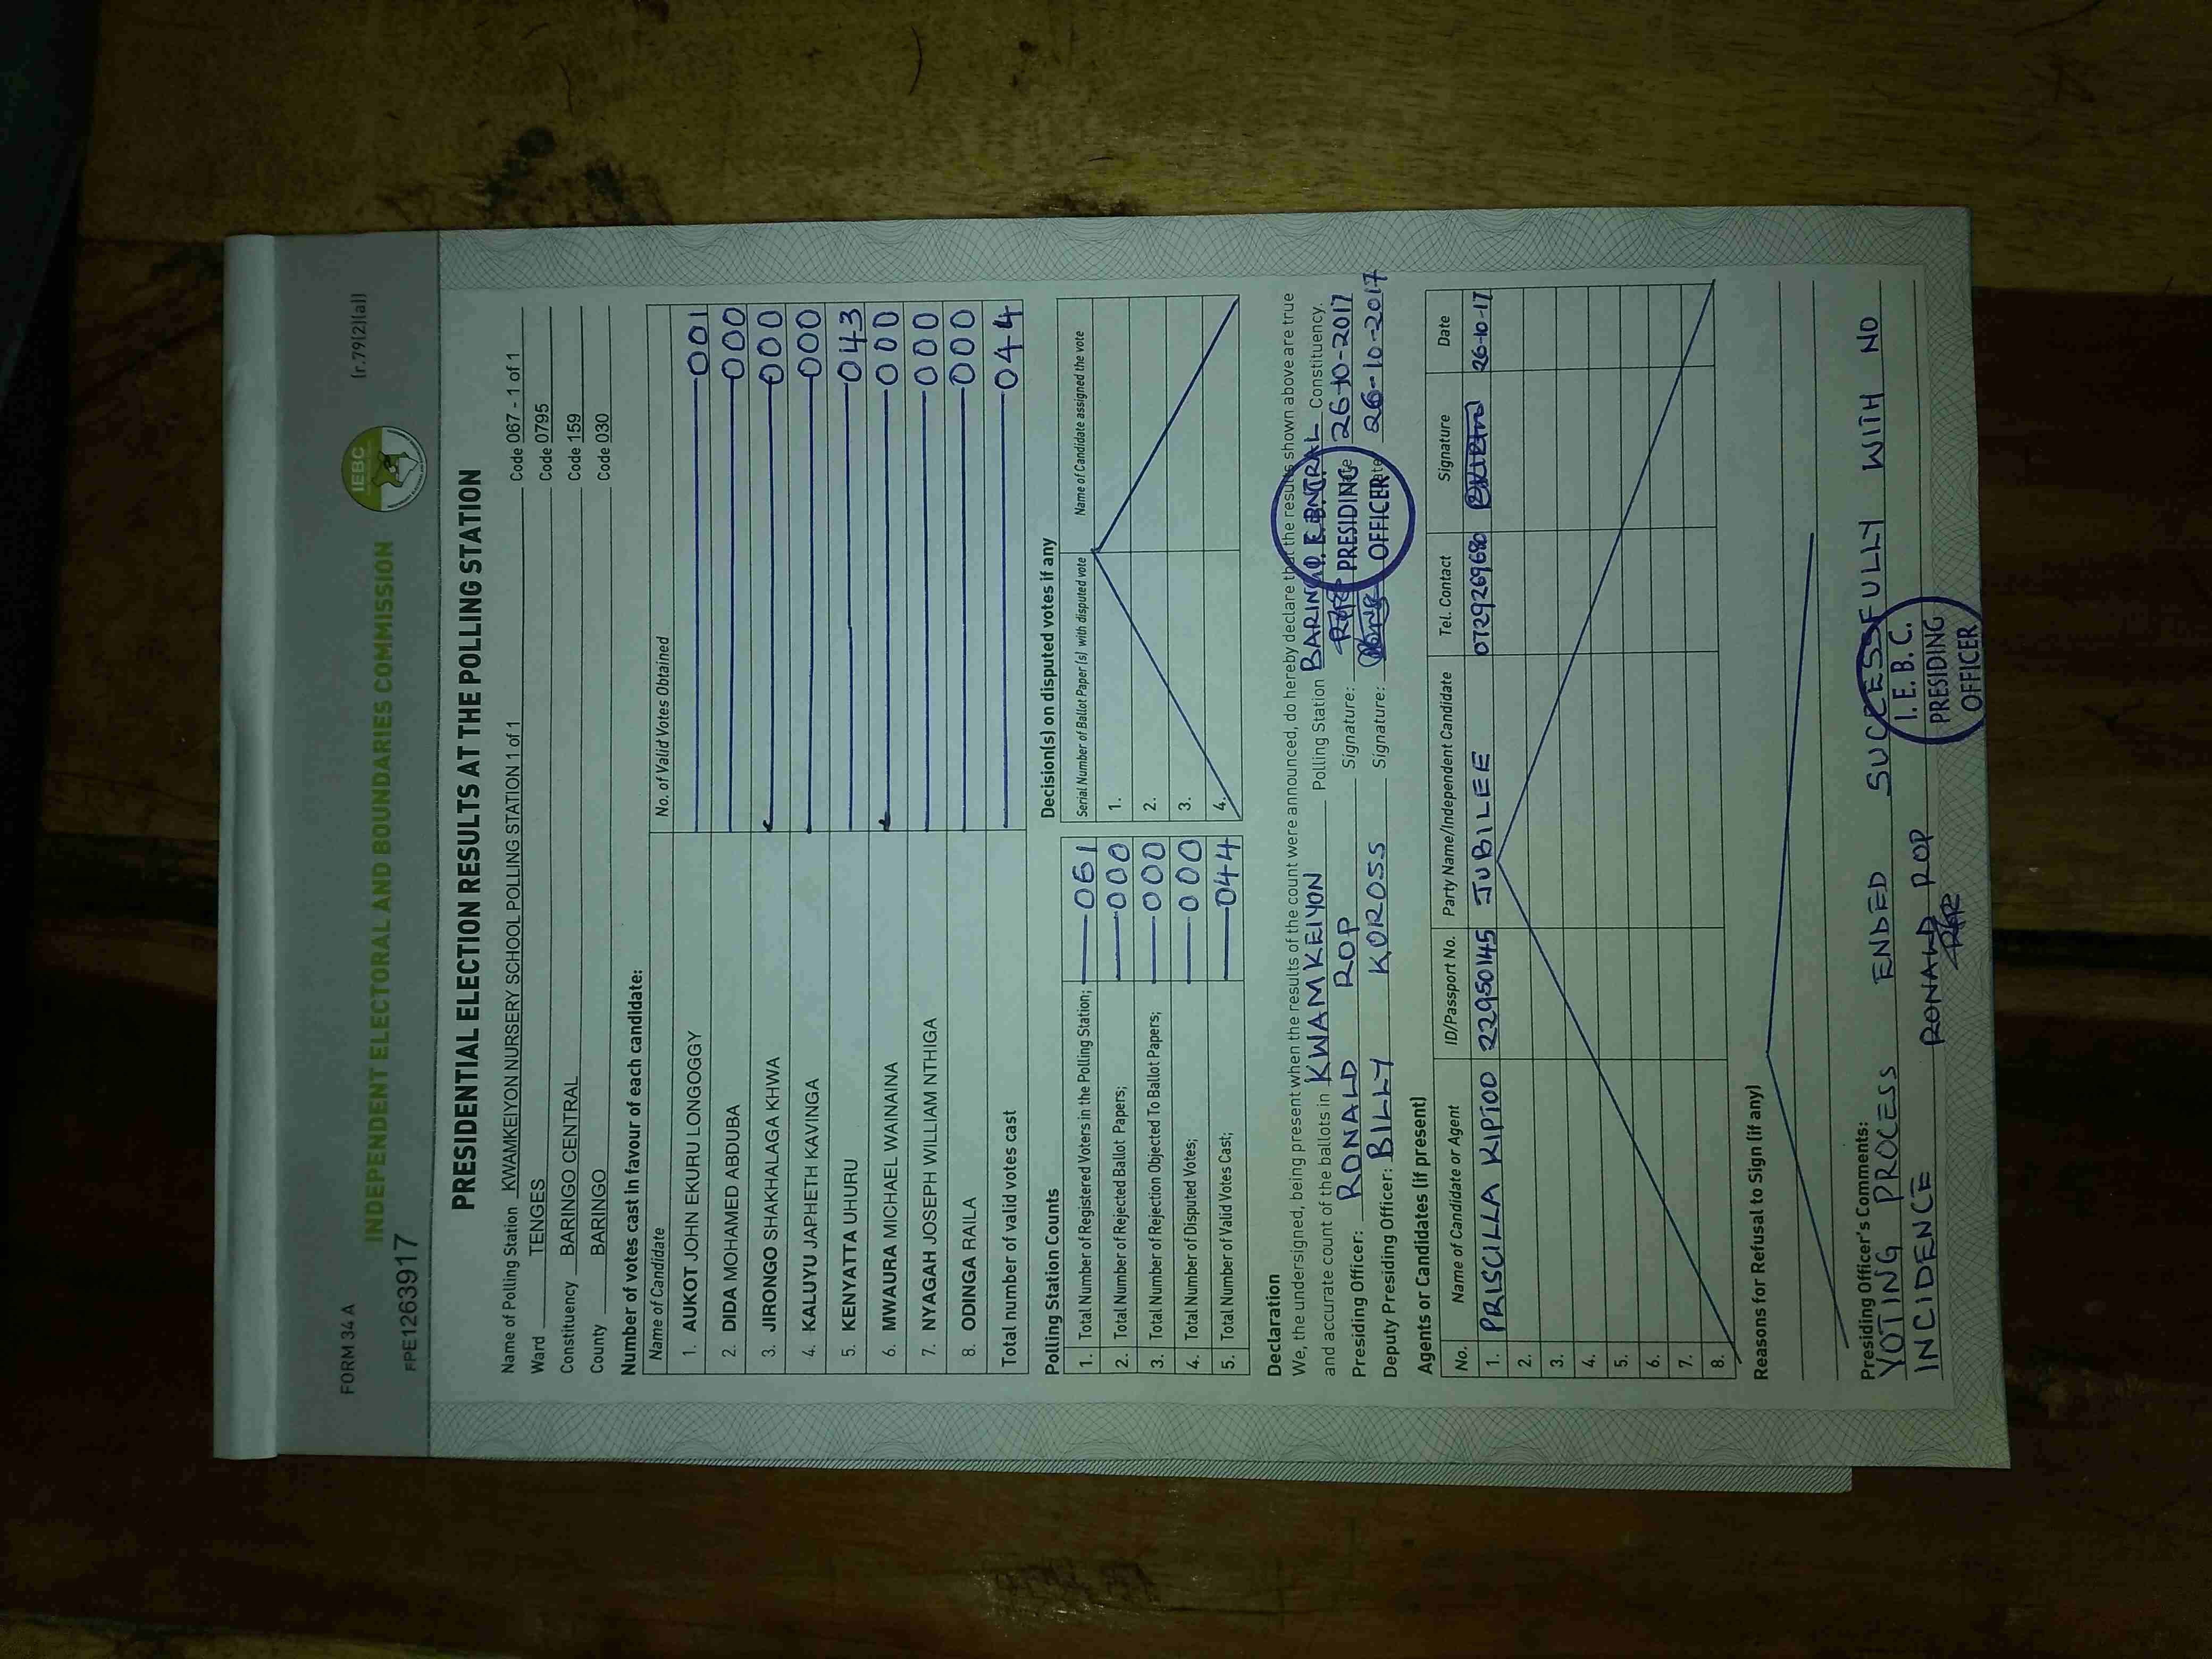 FORM 34 A
(r.79(2)(a))
IEBC
INDEPENDENT ELECTORAL AND BOUNDARIES COMMISSION
FPE1263917
PRESIDENTIAL ELECTION RESULTS AT THE POLLING STATION
Name of Polling Station KWAMKEIYON NURSERY SCHOOL POLLING STATION 1 of 1 Code 067 - 1 of 1
Ward TENGES Code 0795
Constituency BARINGO CENTRAL Code 159
County BARINGO Code 030
Number of votes cast in favour of each candidate:
Name of Candidate No. of Valid Votes Obtained
1. AUKOT JOHN EKURU LONGOGGY 001
2. DIDA MOHAMED ABDUBA 000
3. JIRONGO SHAKHALAGA KHWA 000
4. KALUYU JAPHETH KAVINGA 000
5. KENYATTA UHURU 043
6. MWAURA MICHAEL WAINAINA 000
7. NYAGAH JOSEPH WILLIAM NTHIGA 000
8. ODINGA RAILA 000
Total number of valid votes cast 044
Polling Station Counts
1. Total Number of Registered Voters in the Polling Station; 061
2. Total Number of Rejected Ballot Papers; 000
3. Total Number of Rejection Objected To Ballot Papers; 000
4. Total Number of Disputed Votes; 000
5. Total Number of Valid Votes Cast; 044
Decision(s) on disputed votes if any
Serial Number of Ballot Paper(s) with disputed vote Name of Candidate assigned the vote
1.
2.
3.
4.
Declaration
We, the undersigned, being present when the results of the count were announced, do hereby declare that the results shown above are true
and accurate count of the ballots in KWAMKEIYON Polling Station BARINGO CENTRAL Constituency.
Presiding Officer: RONALD ROP Signature: Date 26-10-2017
Deputy Presiding Officer: BILLY KOROSS Signature: Date 26-10-2017
I.E.B.C.
PRESIDING
OFFICER
Agents or Candidates (if present)
No. Name of Candidate or Agent ID/Passport No. Party Name/Independent Candidate Tel. Contact Signature Date
1. PRISCILLA KIPTOO 22950145 JUBILEE 0729269680 26-10-17
2.
3.
4.
5.
6.
7.
8.
Reasons for Refusal to Sign (if any)
Presiding Officer's Comments:
VOTING PROCESS ENDED SUCCESSFULLY WITH NO
INCIDENCE RONALD ROP
I.E.B.C.
PRESIDING
OFFICER